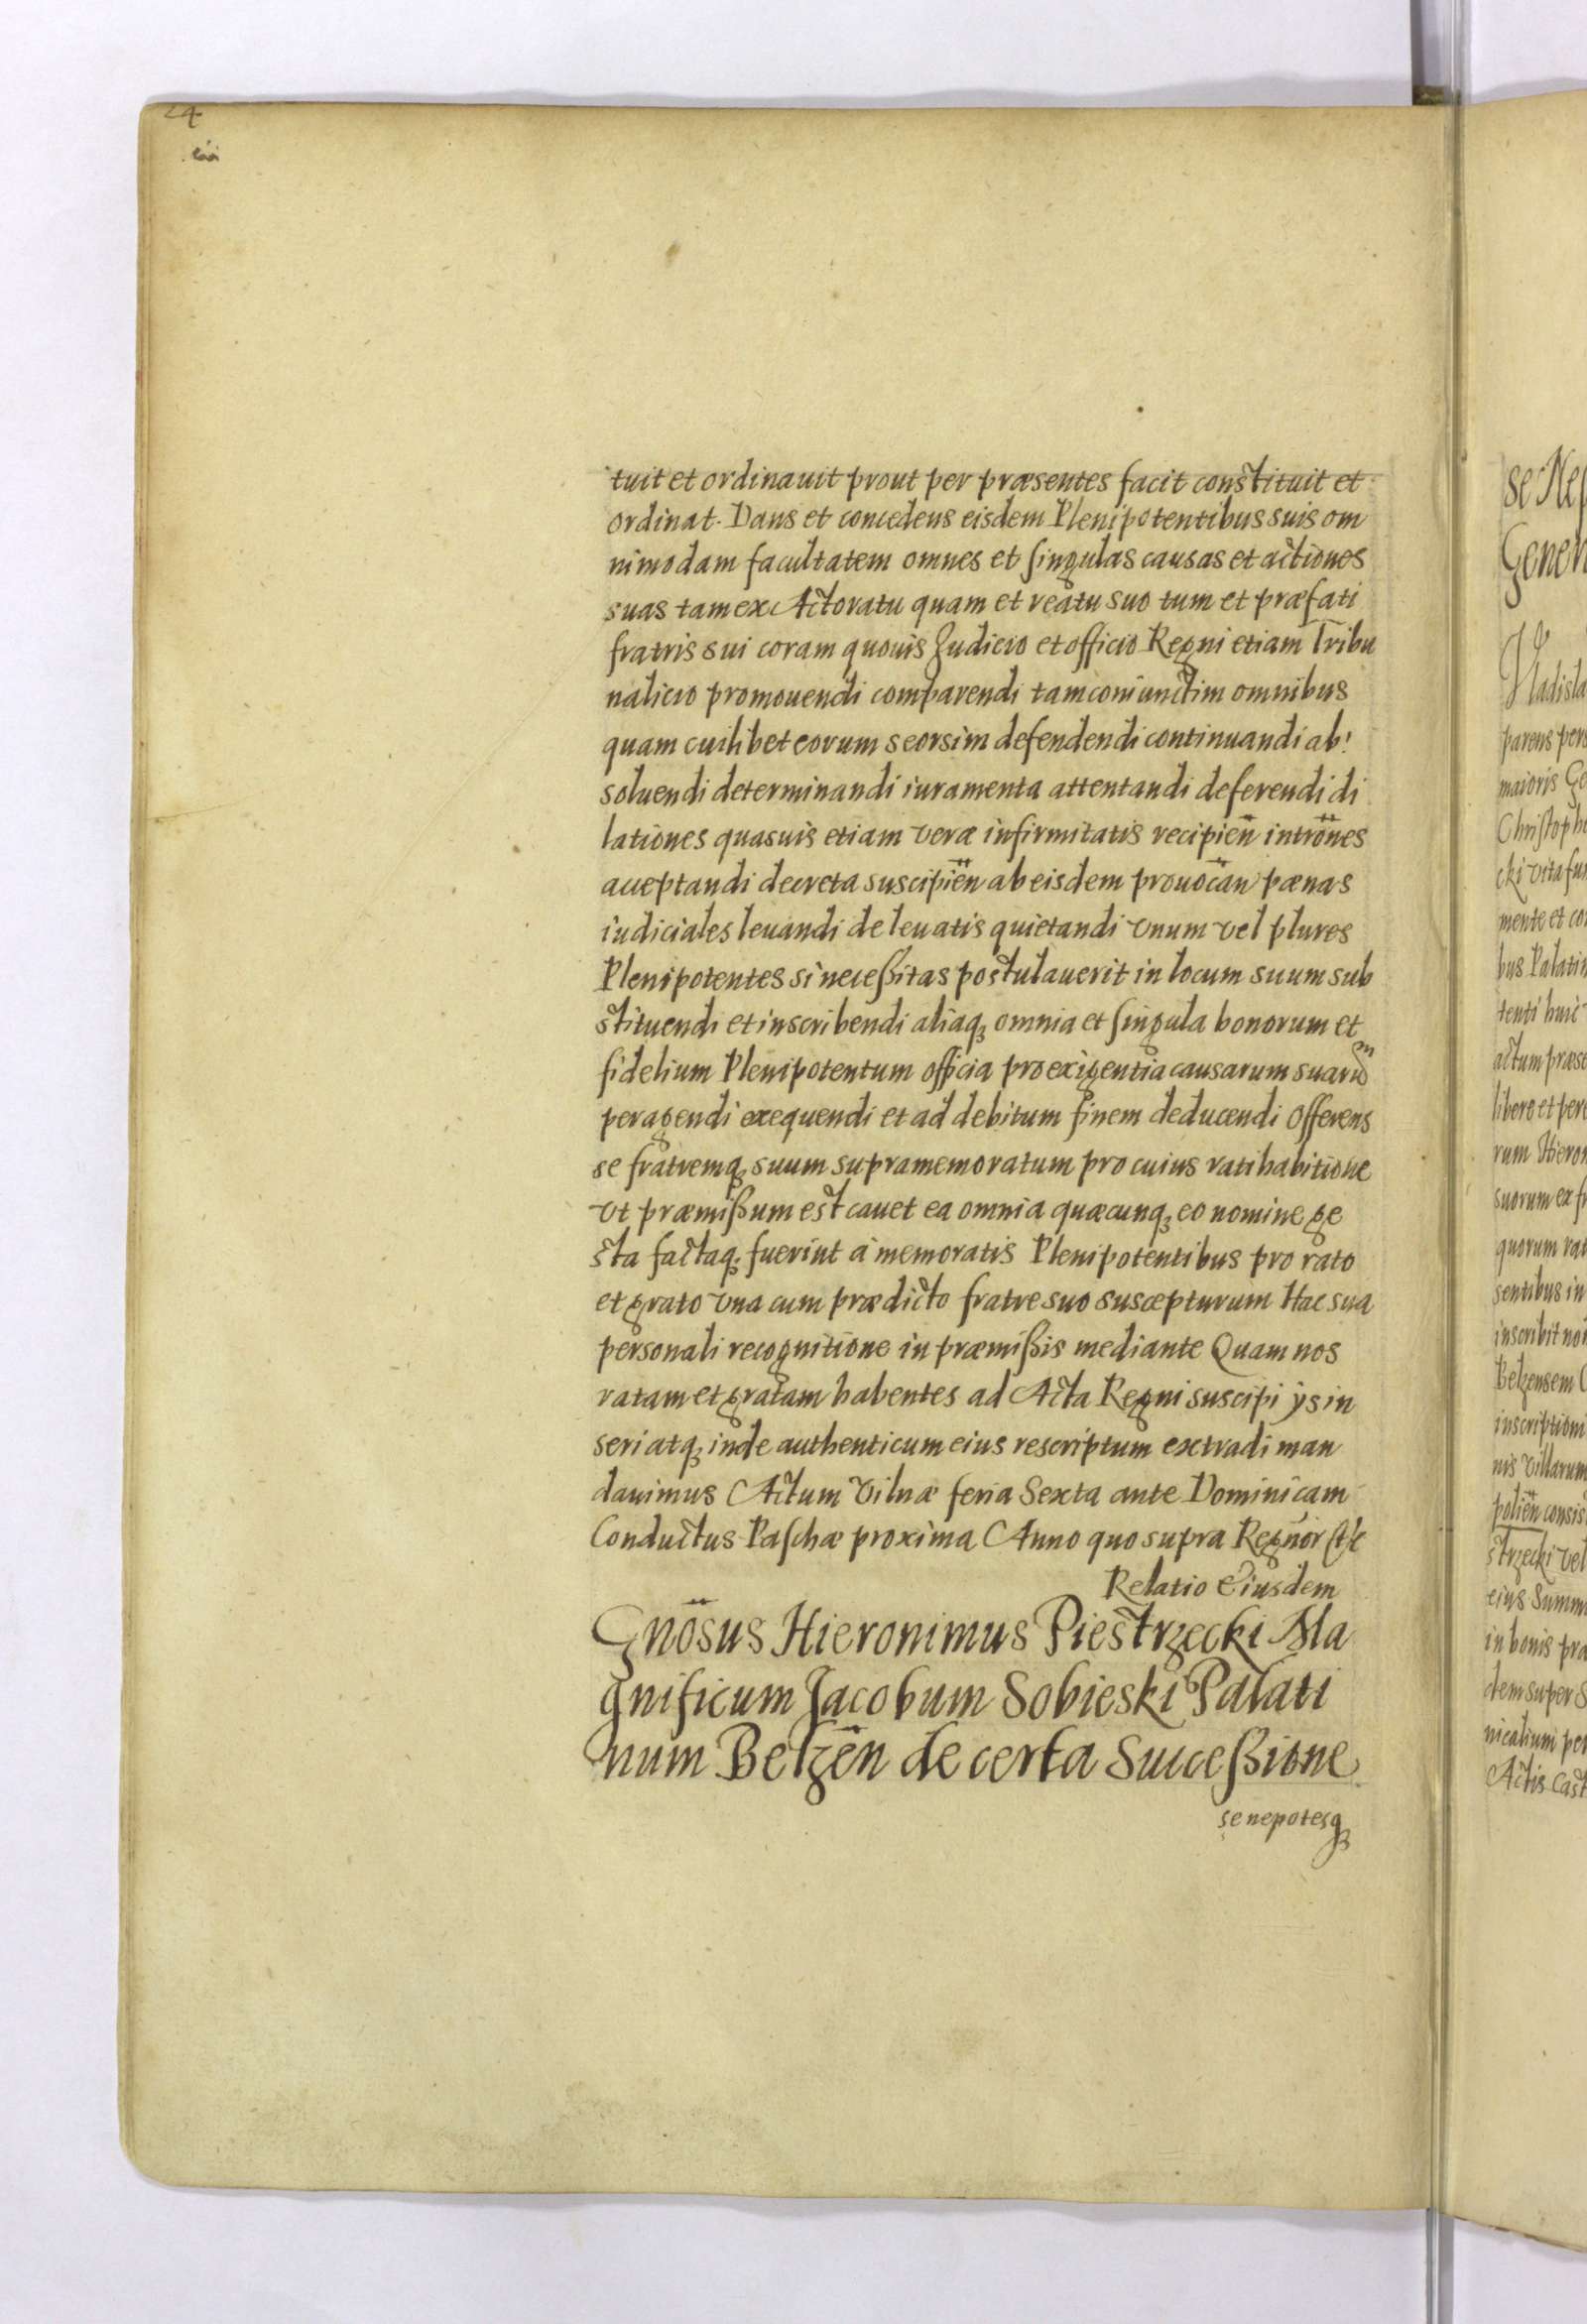 24
tuit et ordinauit prout per præsentes facit constituit et
ordinat. Dans et concedens eisdem Plenipotentibus suis om
nimodam facultatem omnes et singulas causas et actiones
suas tam ex Actoratu quam et reatu suo tum et præfati
fratris sui coram quouis Judicio et officio Regni etiam Tribu
nalicio promouendi comparendi tam coniunctim omnibus
quam cuilibet eorum seorsim defendendi continuandi ab
soluendi determinandi iuramenta attentandi deferendi di
lationes quasuis etiam veræ infirmitatis recipien̈ intrön̈es
acceptandi decreta suscipien̈ ab eisdem prouocän pænas
iudiciales leuandi de leuatis quietandi vnum vel plures
Plenipotentes si neceßitas postulauerit in locum suum sub
stituendi et inscribendi aliaq; omnia et singula bonorum et
fidelium Plenipotentum officia pro exigentia causarum suarum
peragendi exequendi et ad debitum finem deducendi Offerens
se fratremq; suum supramemoratum pro cuius ratihabitione
vt præmißum est cauet ea omnia quæcunq; eo nomine ge
sta factaq; fuerint à memoratis Plenipotentibus pro rato
et grato vna cum prædicto fratre suo suscepturum Hac sua
personali recognitione in præmißis mediante Quam nos
ratam et gratam habentes ad Acta Regni suscipi ijs in
seri atq; inde authenticum eius rescriptum extradi man
dauimus Actum Vilnæ feria Sexta ante Dominicam
Conductus Paschæ proxima Anno quo supra Regnor̃ etc
Relatio Eiusdem
Gnösus Hieronimus Piestrzecki Ma
gnificum Jacobum Sobieski Palati
num Belzën de certa Succeßione
se nepotesq;
se Nep
Gener
Vladisla
parens pers
maioris Ge
Christoph
cki vita fun
mente et co
bus Palatin
tenti huic
actum præse
libere et per
rum Hieron
suorum ex fr
quorum rat
sentibus in
inscribit no
Belzensem C
inscriptioni
nis Villarum
polien̈ consis
strzecki vel
eius Summ
in bonis pra
dem super S
nicalium per
Actis Cast